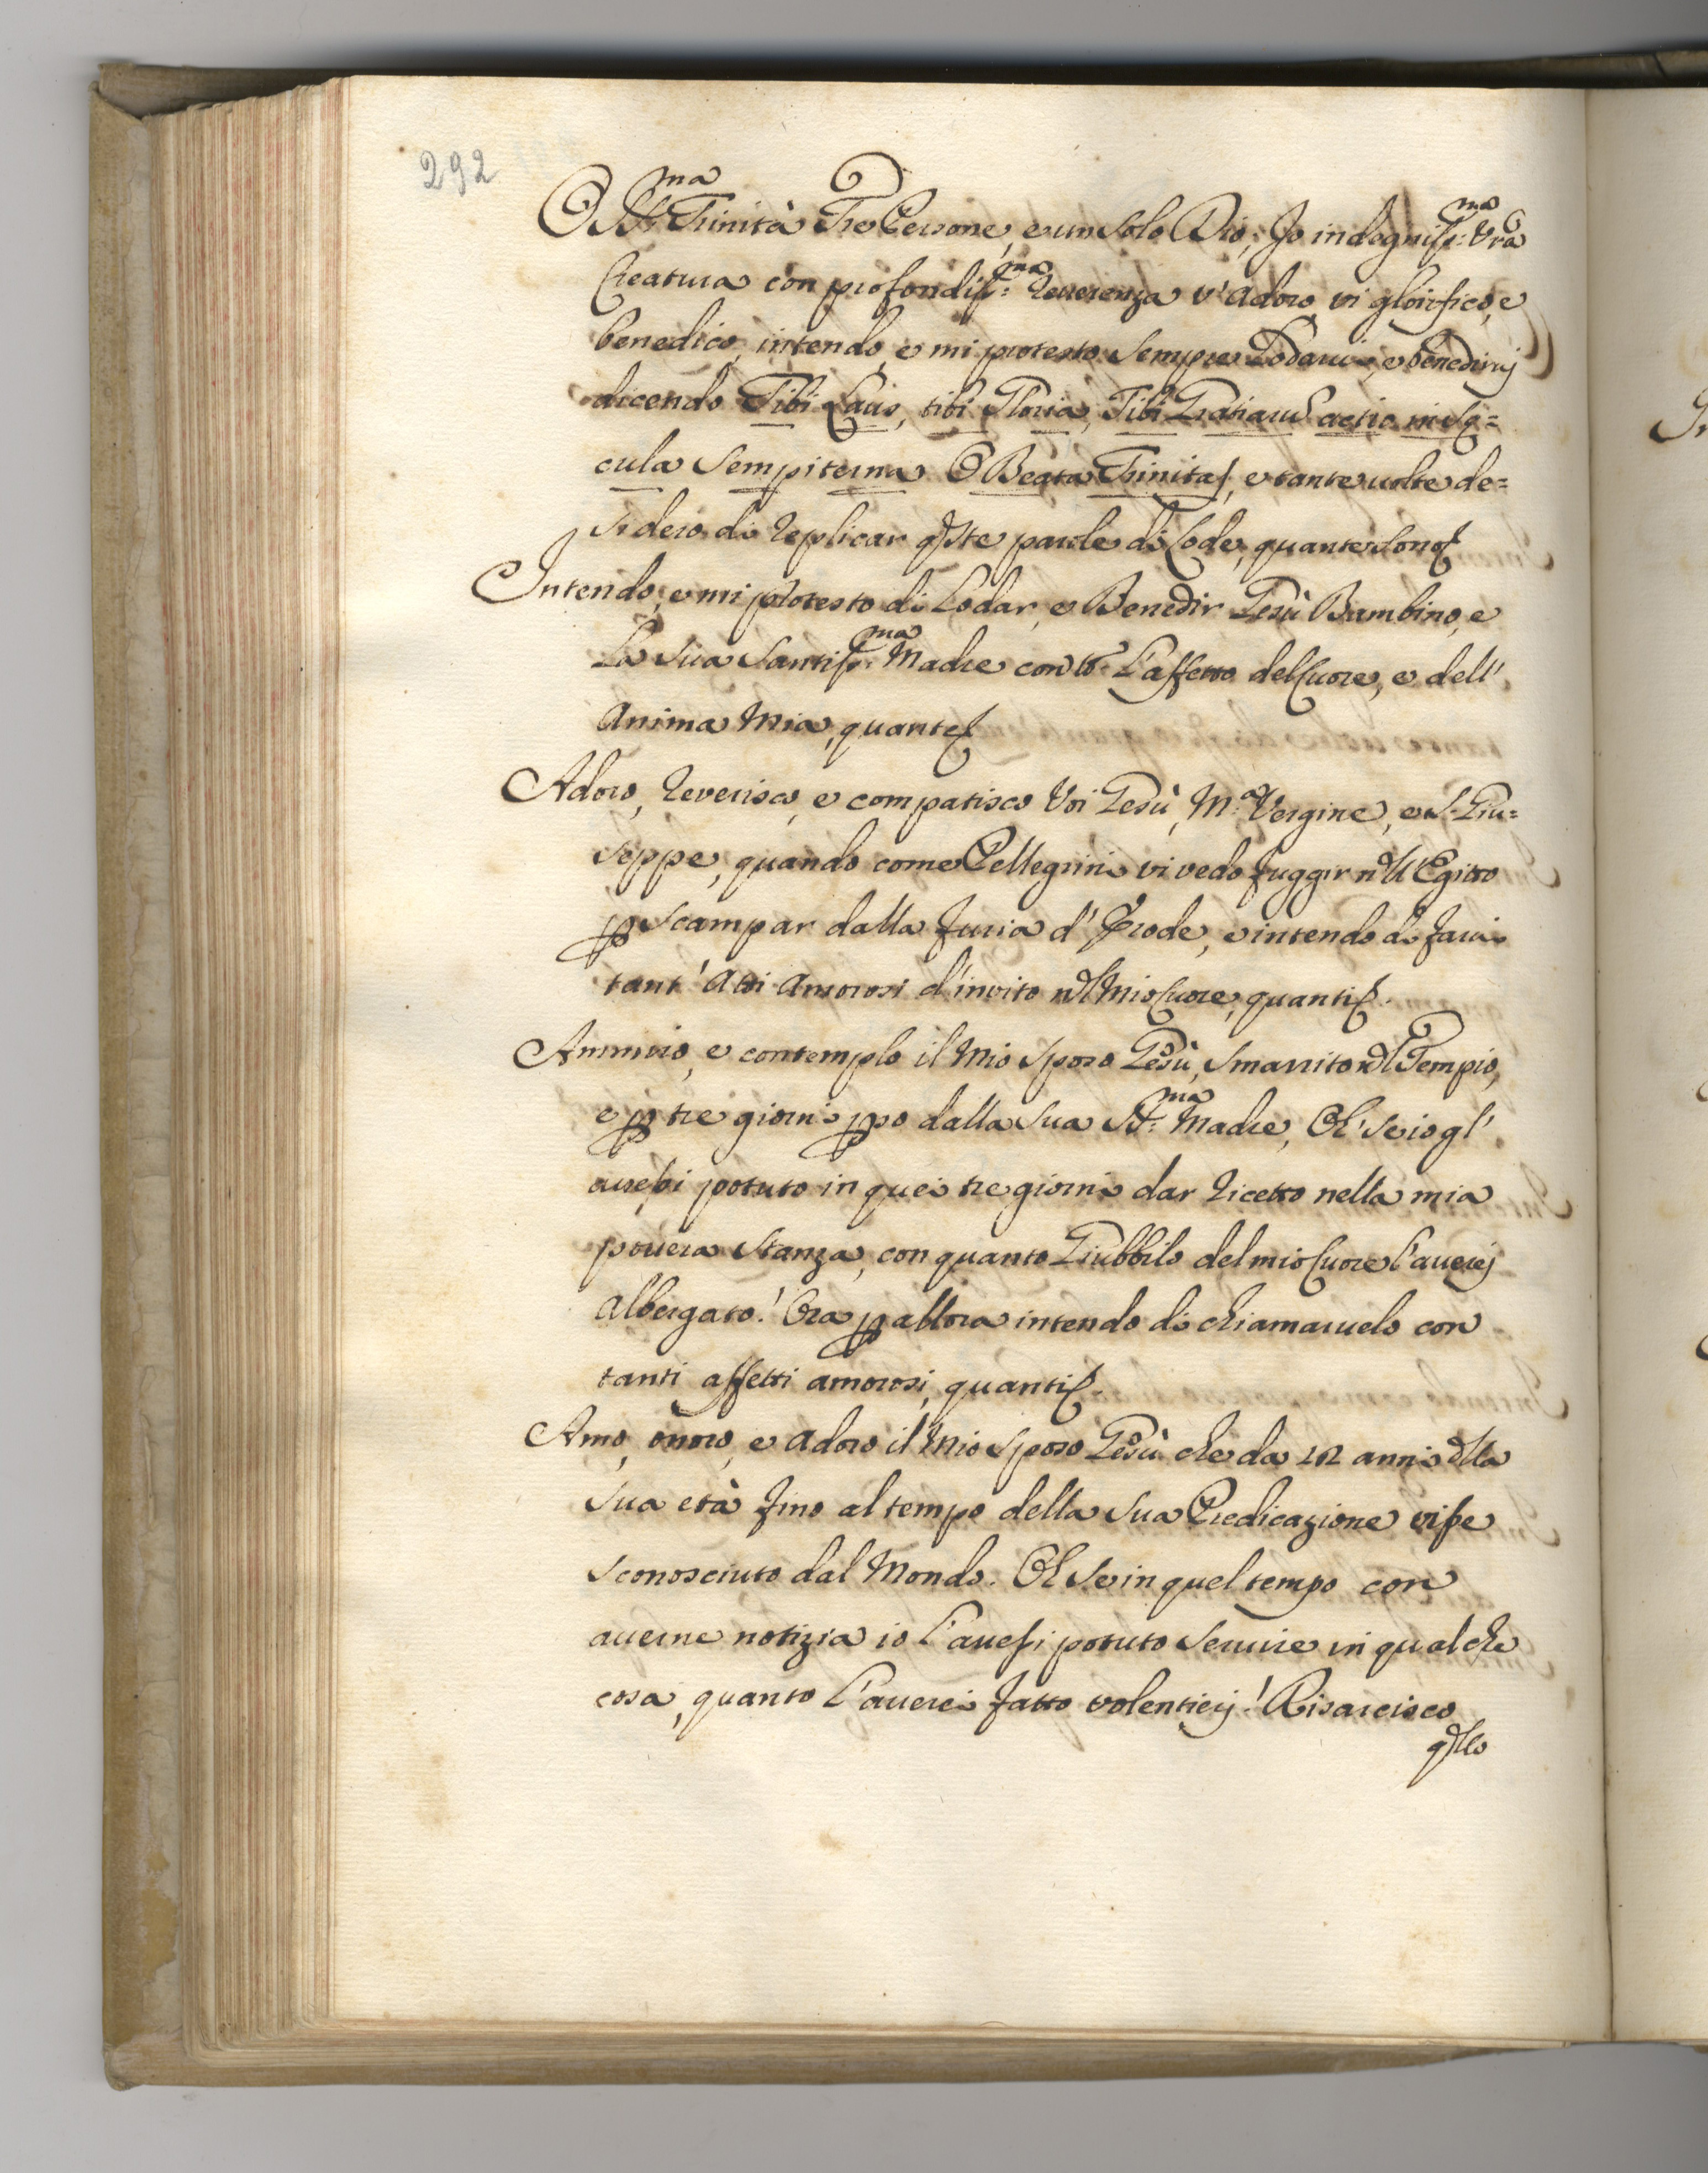 292
O SS.ma Trinità Tre Persone, e un solo Dio, Io indegniss:ma Vrã
Creatura con profondiss:ma Reverenza v'adoro, vi glorifico, e
benedico, intendo, e mi protesto sempre Lodarvi, e benedirvj
dicendo Tibi Laus, tibi Gloria, Tibi Gratiarũ actio in Sę=
cula Sempiterna O Beata Trinitas, e tante volte de=
sidero di replicar qste parole di Lode, quante sono
Intendo, e mi protesto di Lodar, e Benedir Gesù Bambino, e
La sua Santiss:ma Madre con tt̃o L'affetto del Cuore, e dell'
Anima Mia, quante
Adoro, Reverisco, e compatisco Voi Gesù, M.a Vergine, e S. Giu=
seppe, quando come Pellegrini vi vedo fuggir nell'Egitto
p scampar dalla furia d'Erode, e intendo di farvi
tant'Atti Amorosi d'invito nel Mio Cuore, quanti
Ammiro, e contemplo il Mio Sposo Gesù, smarrito nel Tempio,
e p tre giorni pso dalla sua SS:ma Madre, Oh' se io gl'
avessi potuto in quei tre giorni dar Ricetto nella mia
povera Stanza, con quanto Giubbilo del mio Cuore l'averej
Albergato! Ora p allora intendo di chiamarvelo con
tanti affetti amorosi, quanti
Amo, onoro, e adoro il Mio Sposo Gesù che da 12 anni della
sua età fino al tempo della sua Predicazione visse
sconosciuto dal Mondo. Oh se in quel tempo con
averne notizia io l'avessi potuto servire in qualche
cosa, quanto l'averei fatto volentierj! Risarcisco
qllo